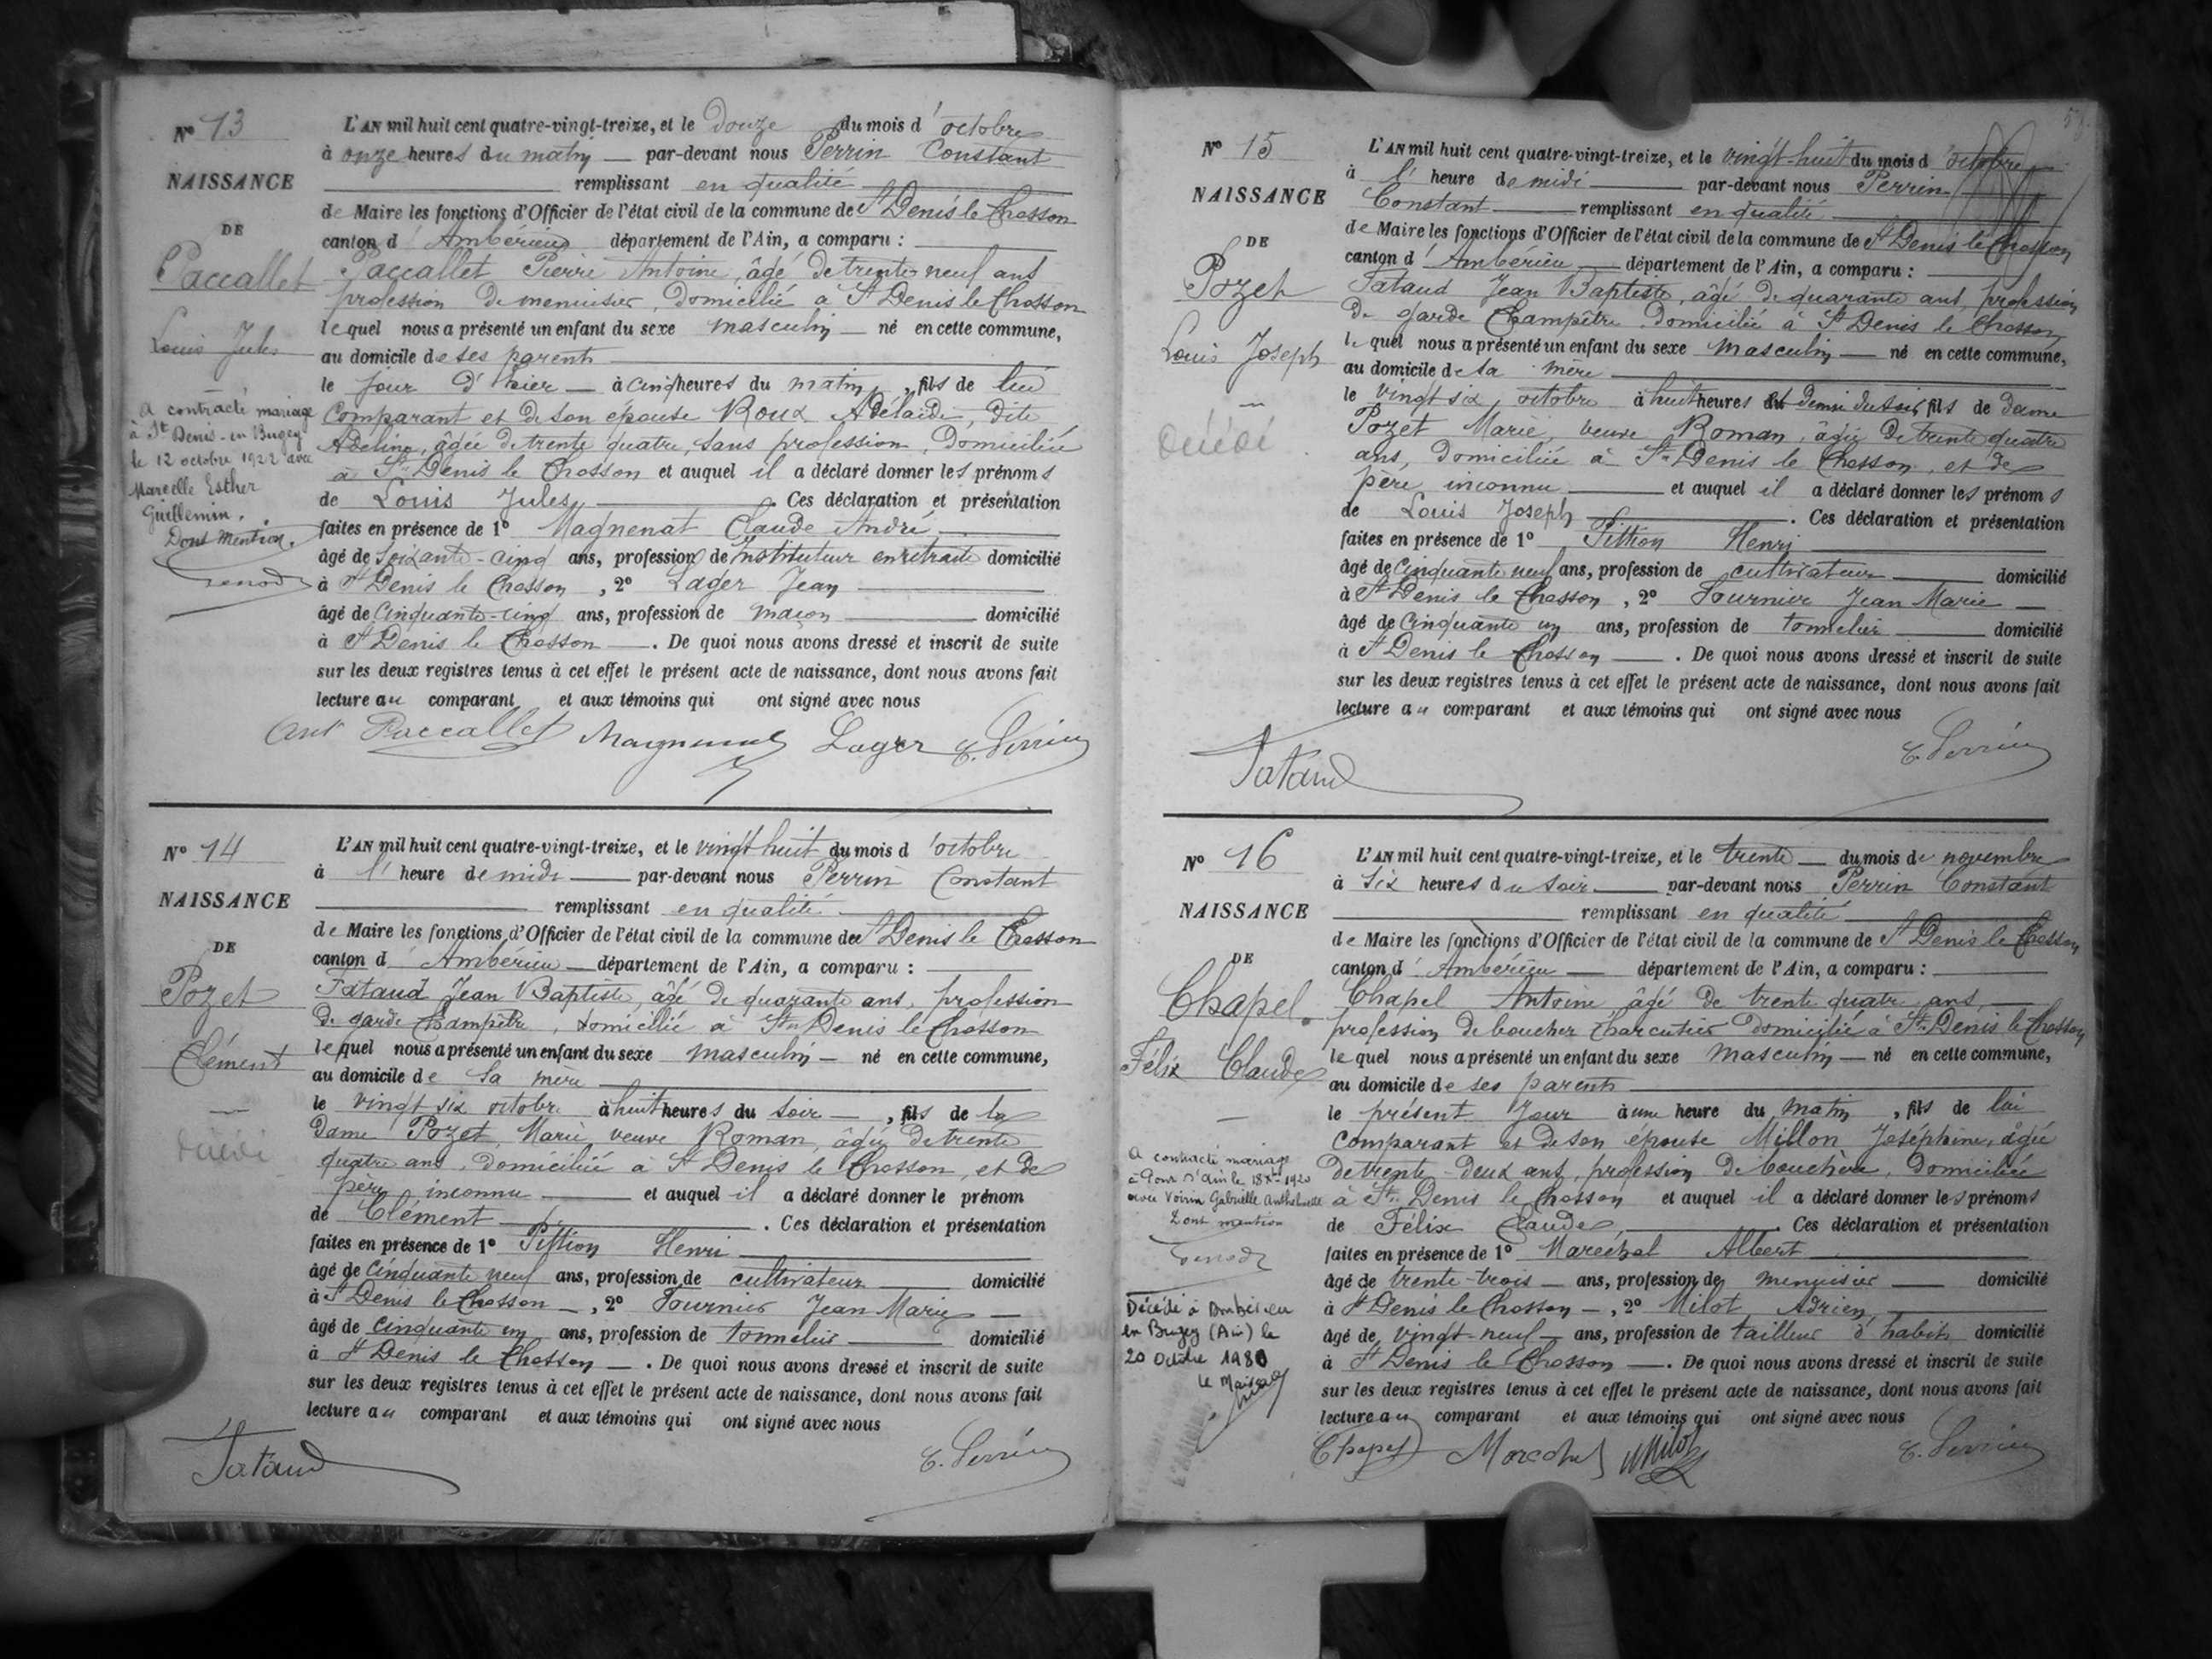 Nº 13
NAISSANCE
DE
Paccallet
Louis Jules
A contracté mariage
à St Denis-en Bugey
le 12 octobre 1922 avec
Marcelle Esther
Guillemin.
Dont mention.
L'AN mil huit cent quatre-vingt-treize, et le douze du mois d'octobre
à onze heures du matin — par-devant nous Perrin Constant
remplissant en qualité
de Maire les fonctions d'Officier de l'état civil de la commune de St Denis le Chosson
canton d'Ambérieu département de l'Ain, a comparu :
Paccallet Pierre Antoine, âgé de trente-neuf ans
profession de menuisier, domicilié à St Denis le Chosson
lequel nous a présenté un enfant du sexe masculin — né en cette commune,
au domicile de ses parents
le jour d'hier — à cinq heures du matin, fils de lui
comparant et de son épouse Roux Adélaïde, dite
Adeline, âgée de trente quatre, sans profession, domiciliée
à St Denis le Chosson et auquel il a déclaré donner les prénoms
de Louis Jules. Ces déclaration et présentation
faites en présence de 1º Magnenat Claude André
âgé de soixante-cinq ans, profession de Instituteur en retraite domicilié
à St Denis le Chosson, 2º Lager Jean
âgé de cinquante-cinq ans, profession de maçon domicilié
à St Denis le Chosson —. De quoi nous avons dressé et inscrit de suite
sur les deux registres tenus à cet effet le présent acte de naissance, dont nous avons fait
lecture au comparant et aux témoins qui ont signé avec nous
Ant Paccallet Magnenat Lager C. Perrin
Nº 14
NAISSANCE
DE
Pozet
Clément
décédé
L'AN mil huit cent quatre-vingt-treize, et le vingt huit du mois d'octobre
à l'heure de midi — par-devant nous Perrin Constant
remplissant en qualité
de Maire les fonctions d'Officier de l'état civil de la commune de St Denis le Chosson
canton d'Ambérieu — département de l'Ain, a comparu :
Tataud Jean Baptiste, âgé de quarante ans, profession
de garde Champêtre, domicilié à St Denis le Chosson
lequel nous a présenté un enfant du sexe masculin — né en cette commune,
au domicile de sa mère
le vingt six octobre à huit heures du soir —, fils de la
Dame Pozet Marie veuve Roman, âgée de trente
quatre ans, domiciliée à St Denis le Chosson, et de
père inconnu — et auquel il a déclaré donner le prénom
de Clément. Ces déclaration et présentation
faites en présence de 1º Pittion Henri
âgé de cinquante neuf ans, profession de cultivateur domicilié
à St Denis le Chosson —, 2º Fournier Jean Marie —
âgé de cinquante un ans, profession de tonnelier domicilié
à St Denis le Chosson —. De quoi nous avons dressé et inscrit de suite
sur les deux registres tenus à cet effet le présent acte de naissance, dont nous avons fait
lecture au comparant et aux témoins qui ont signé avec nous
Tataud C. Perrin
Nº 15
NAISSANCE
DE
Pozet
Louis Joseph
décédé
L'AN mil huit cent quatre-vingt-treize, et le vingt-huit du mois d'octobre
à l'heure de midi — par-devant nous Perrin
Constant — remplissant en qualité
de Maire les fonctions d'Officier de l'état civil de la commune de St Denis le Chosson
canton d'Ambérieu — département de l'Ain, a comparu :
Tataud Jean Baptiste, âgé de quarante ans, profession
de garde Champêtre, domicilié à St Denis le Chosson
lequel nous a présenté un enfant du sexe masculin — né en cette commune,
au domicile de sa mère
le vingt six octobre à huit heures et demie du soir fils de dame
Pozet Marie, veuve Roman, âgée de trente quatre
ans, domiciliée à St Denis le Chosson, et de
père inconnu — et auquel il a déclaré donner les prénoms
de Louis Joseph. Ces déclaration et présentation
faites en présence de 1º Pittion Henri
âgé de cinquante neuf ans, profession de cultivateur domicilié
à St Denis le Chosson, 2º Fournier Jean Marie —
âgé de cinquante un ans, profession de tonnelier domicilié
à St Denis le Chosson —. De quoi nous avons dressé et inscrit de suite
sur les deux registres tenus à cet effet le présent acte de naissance, dont nous avons fait
lecture au comparant et aux témoins qui ont signé avec nous
Tataud C. Perrin
Nº 16
NAISSANCE
DE
Chapel
Félix Claude
A contracté mariage
avec Voirin Gabrielle
Dont mention
Décédé à Ambérieu
en Bugey (Ain) le
20 Octobre 1980
Le Maire
L'AN mil huit cent quatre-vingt-treize, et le trente — du mois de novembre
à six heures du soir — par-devant nous Perrin Constant
remplissant en qualité
de Maire les fonctions d'Officier de l'état civil de la commune de St Denis le Chosson
canton d'Ambérieu — département de l'Ain, a comparu :
Chapel Antoine âgé de trente quatre ans, —
profession de boucher charcutier domicilié à St Denis le Chosson
lequel nous a présenté un enfant du sexe masculin — né en cette commune,
au domicile de ses parents
le présent jour à une heure du matin, fils de lui
comparant et de son épouse Millon Joséphine, âgée
de trente-deux ans, profession de bouchère, domiciliée
à St Denis le Chosson et auquel il a déclaré donner les prénoms
de Félix Claude. Ces déclaration et présentation
faites en présence de 1º Maréchal Albert
âgé de trente-trois — ans, profession de menuisier — domicilié
à St Denis le Chosson —, 2º Milot Adrien,
âgé de vingt-neuf — ans, profession de tailleur d'habits domicilié
à St Denis le Chosson —. De quoi nous avons dressé et inscrit de suite
sur les deux registres tenus à cet effet le présent acte de naissance, dont nous avons fait
lecture au comparant et aux témoins qui ont signé avec nous
Chapel Marechal Milot C. Perrin